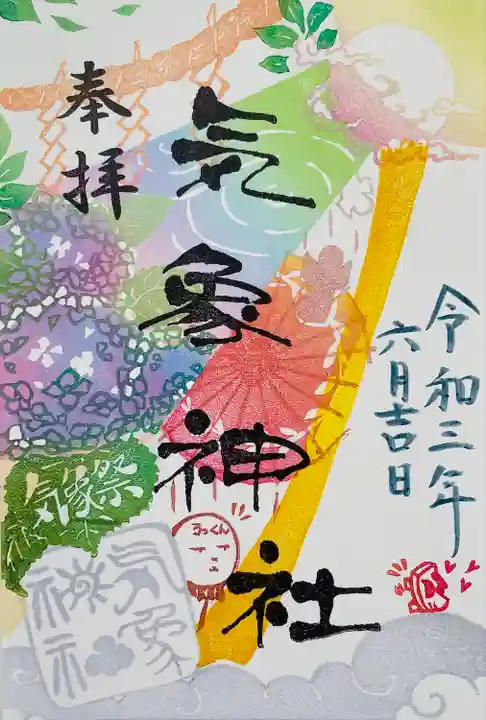 令和三年
六月吉日
奉拝
気象神社
気象祭
うっくん
気象
神社